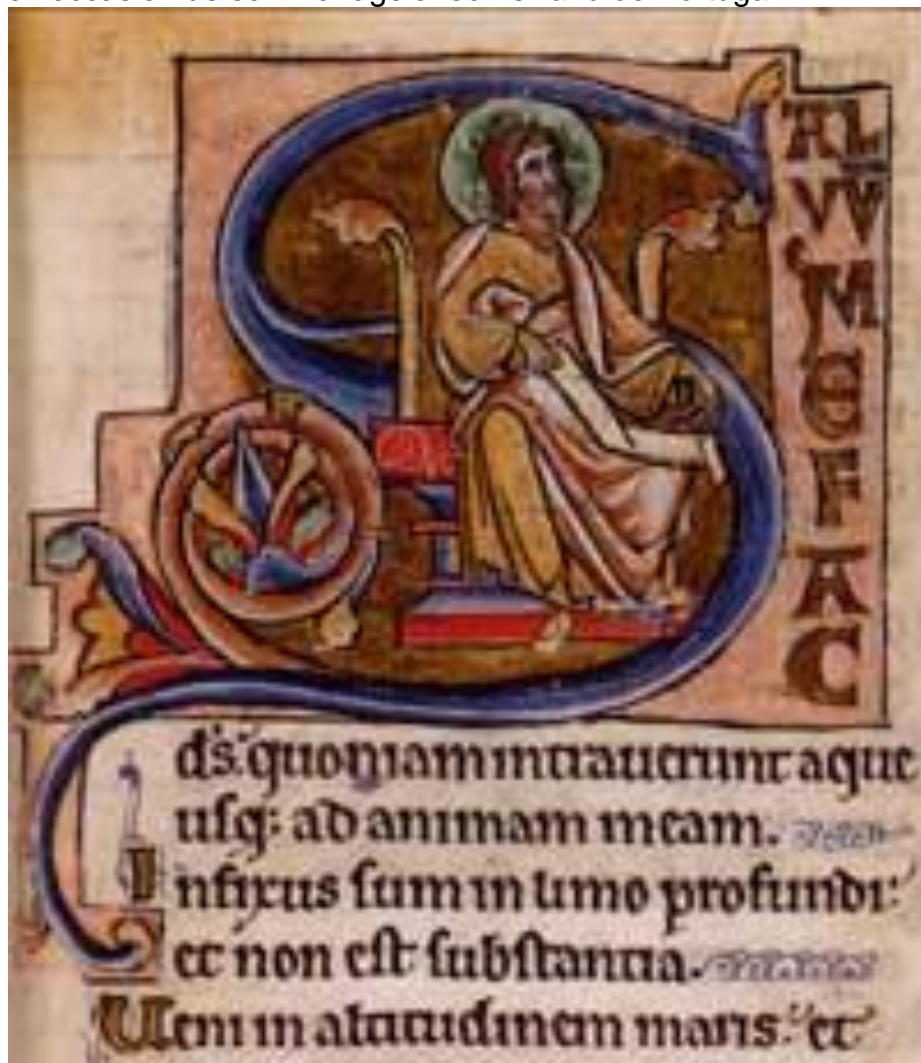 S
AL
VV
M
E
F
A
C
ds. quoniam intrauerunt aque
usq; ad animam meam.
Infixus sum in limo profundi:
et non est substantia.
Ueni in altitudinem maris: et